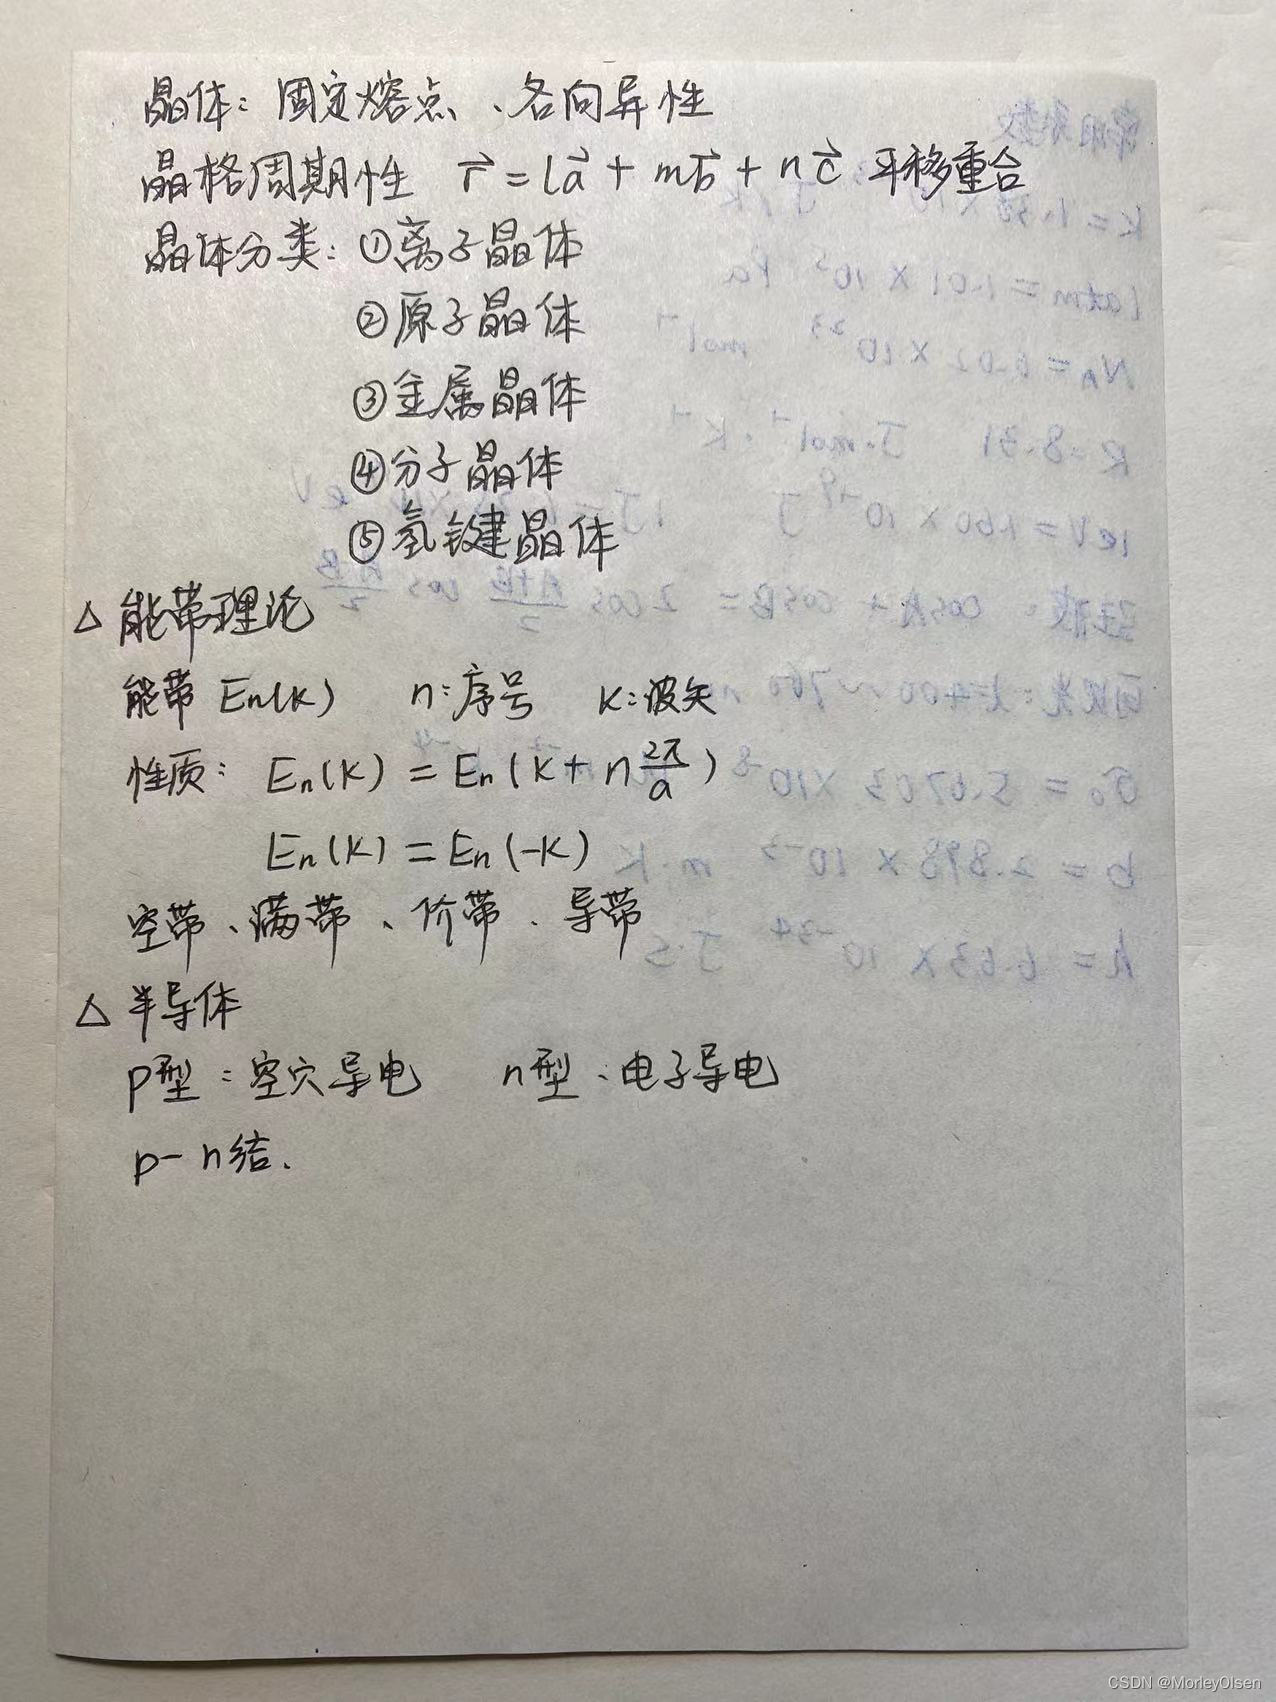 晶体：固定熔点、各向异性
晶格周期性 r⃗ = la⃗ + mb⃗ + nc⃗ 平移重合
晶体分类：①离子晶体
②原子晶体
③金属晶体
④分子晶体
⑤氢键晶体
△ 能带理论
能带 En(k) n：序号 k：波矢
性质： En(k) = En(k + n 2π/a)
En(k) = En(-k)
空带、满带、价带、导带
△ 半导体
p型：空穴导电 n型：电子导电
p-n结.
CSDN @MorleyOlsen